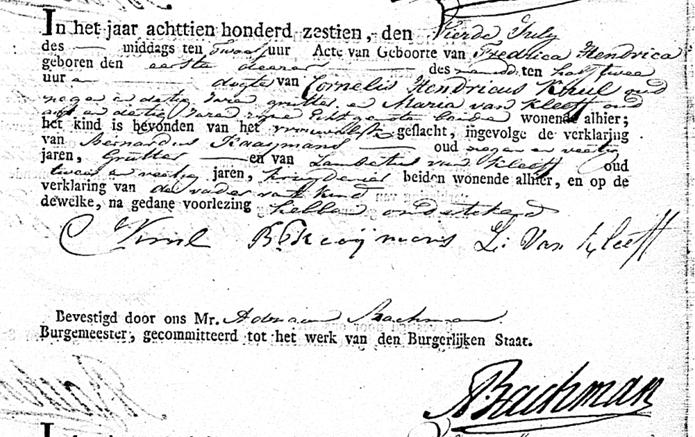 In het jaar achttien honderd zestien, den Vierde July
des middags ten Twaalf uur Acte van Geboorte van Fredrica Hendrica
geboren den eerste deezer des namidd. ten half twee
uur dogter van Cornelis Hendricus Kruel oud
negen en dertig Jaren grutter en Maria van Kleeff oud
en dertig Jaren zyne Echtgenote beiden wonende alhier;
het kind is bevonden van het vrouwelyk geslacht, ingevolge de verklaring
van Bernardus Kooymans oud negen en veertig
jaren, Grutter en van Lambertus van Kleeff oud
twee en veertig jaren, kruydenier beiden wonende alhier, en op de
verklaring van de vader van't kind
dewelke, na gedane voorlezing hebben ondertekend
C H Kruel B Kooijmans L: Van Kleeff
Bevestigd door ons Mr. Adriaan Bachman
Burgemeester, gecommitteerd tot het werk van den Burgerlijken Staat.
ABachman